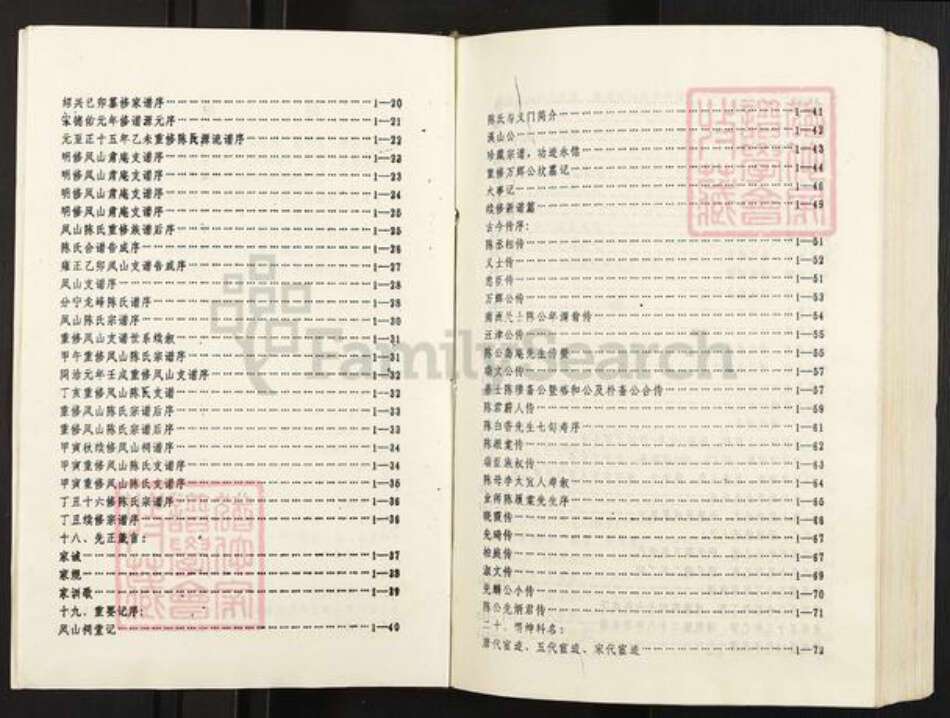 绍兴己卯纂修家谱序 1—20
宋德佑元年修谱源元序 1—21
元至正十五年乙未重修陈氏源流谱序 1—22
明修凤山肃庵支谱序 1—23
明修凤山肃庵支谱序 1—23
明修凤山肃庵支谱序 1—24
明修凤山肃庵支谱序 1—25
凤山陈氏重修族谱后序 1—25
陈氏会谱告成序 1—26
雍正乙卯凤山支谱告成序 1—27
凤山支谱序 1—28
分宁龙峰陈氏谱序 1—28
凤山陈氏宗谱序 1—30
重修凤山支谱世系续叙 1—31
甲午重修凤山陈氏宗谱序 1—31
同治元年壬戌重修凤山支谱序 1—32
丁亥重修凤山陈氏支谱 1—32
重修凤山陈氏宗谱后序 1—33
重修凤山陈氏宗谱后序 1—33
甲寅秋续修凤山祠谱序 1—34
甲寅重修凤山陈氏支谱序 1—34
甲寅重修凤山陈氏支谱序 1—35
丁丑十六修陈氏宗谱序 1—36
丁丑续修宗谱序 1—36
十八、先正箴言：
家诫 1—37
家规 1—38
家训歌 1—39
十九、重要记序：
凤山祠堂记 1—40
陈氏与义门简介 1—41
溪山公 1—42
珍藏宗谱，功追永儒 1—43
重修万辉公坟墓记 1—44
大事记 1—46
续修新谱篇 1—49
古今传序：
陈丞相传 1—51
义士传 1—52
忠臣传 1—51
万辉公传 1—53
陈公年谓翁传 1—54
汪津公传 1—55
陈公 庵先生传 1—55
瑞文公传 1—57
陈 斋公暨 和公及朴斋公合传 1—57
陈君蔚人传 1—59
陈白香先生七旬寿序 1—61
陈 棠传 1—62
瑞臣族叔传 1—63
陈母李太宜人寿叙 1—64
业师陈履棠先生序 1—65
晓霞传 1—66
先琦传 1—67
1—67
淑文传 1—69
光麟公小传 1—70
陈公先炳君传 1—71
二十、明绅科名：
唐代宦迹、五代宦迹、宋代宦迹 1—72
FamilySearch